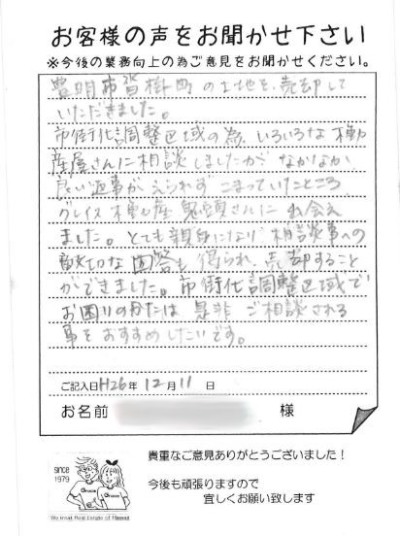 お客様の声をお聞かせ下さい
※今後の業務向上の為ご意見をお聞かせください。
豊明市沓掛町の土地を売却して
いただきました。
市街化調整区域の為、いろいろな不動
産屋さんに相談しましたがなかなか
良い返事がえられずこまっていたところ
グレイス不動産 鬼頭さんに出会え
ました。とても親身になり相談事への
適切な回答も得られ、売却すること
ができました。市街化調整区域で
お困りのかたは是非ご相談される
事をおすすめしたいです。
ご記入日H26年12月11日
お名前 様
貴重なご意見ありがとうございました！
今後も頑張りますので
宜しくお願い致します
since
1979